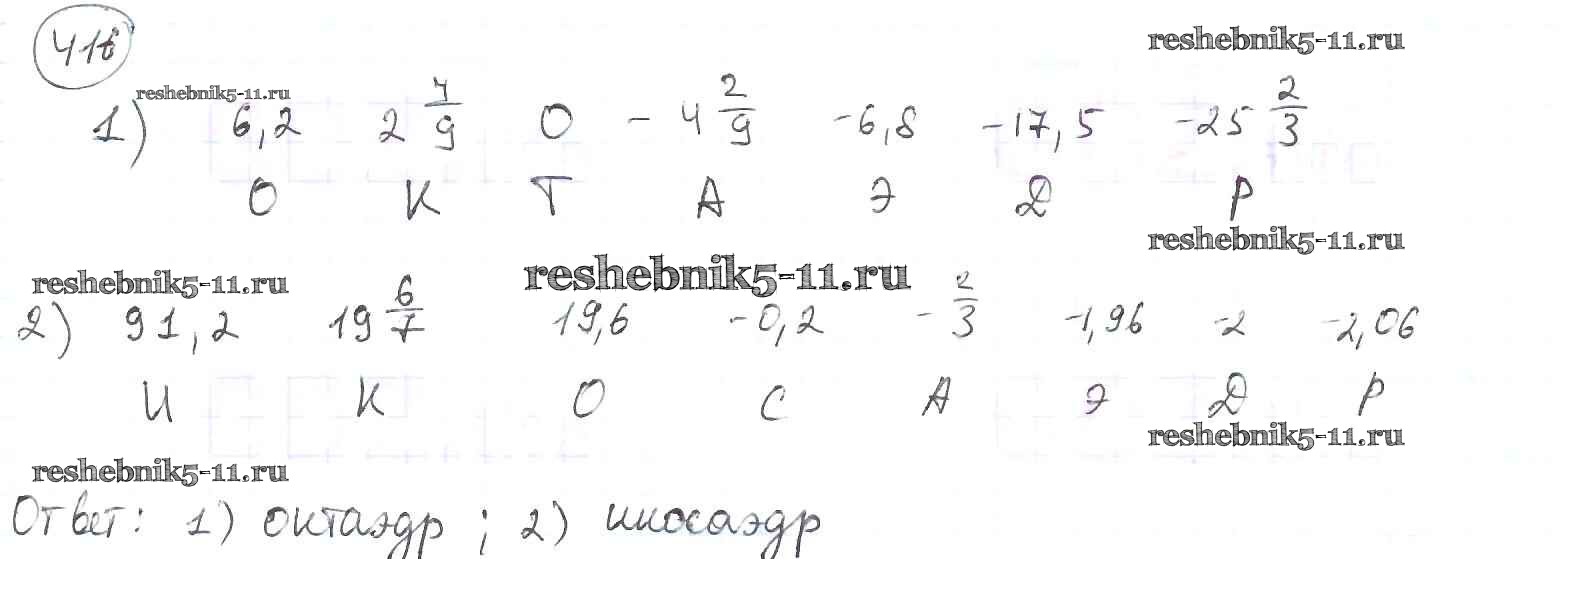 416
reshebnik5-11.ru
reshebnik5-11.ru
1) 6,2 2 4/9 0 -4 2/9 -6,8 -17,5 -25 2/3
О К Т А Э Д Р
reshebnik5-11.ru
reshebnik5-11.ru reshebnik5-11.ru
2) 91,2 19 6/7 19,6 -0,2 -2/3 -1,96 -2 -2,06
И К О С А Э Д Р
reshebnik5-11.ru
reshebnik5-11.ru
Ответ: 1) октаэдр ; 2) икосаэдр